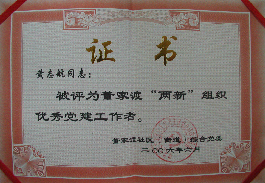 证书
黄志航同志：
被评为董家渡“两新”组织
优秀党建工作者。
董家渡社区（街道）综合党委
二〇〇六年六月